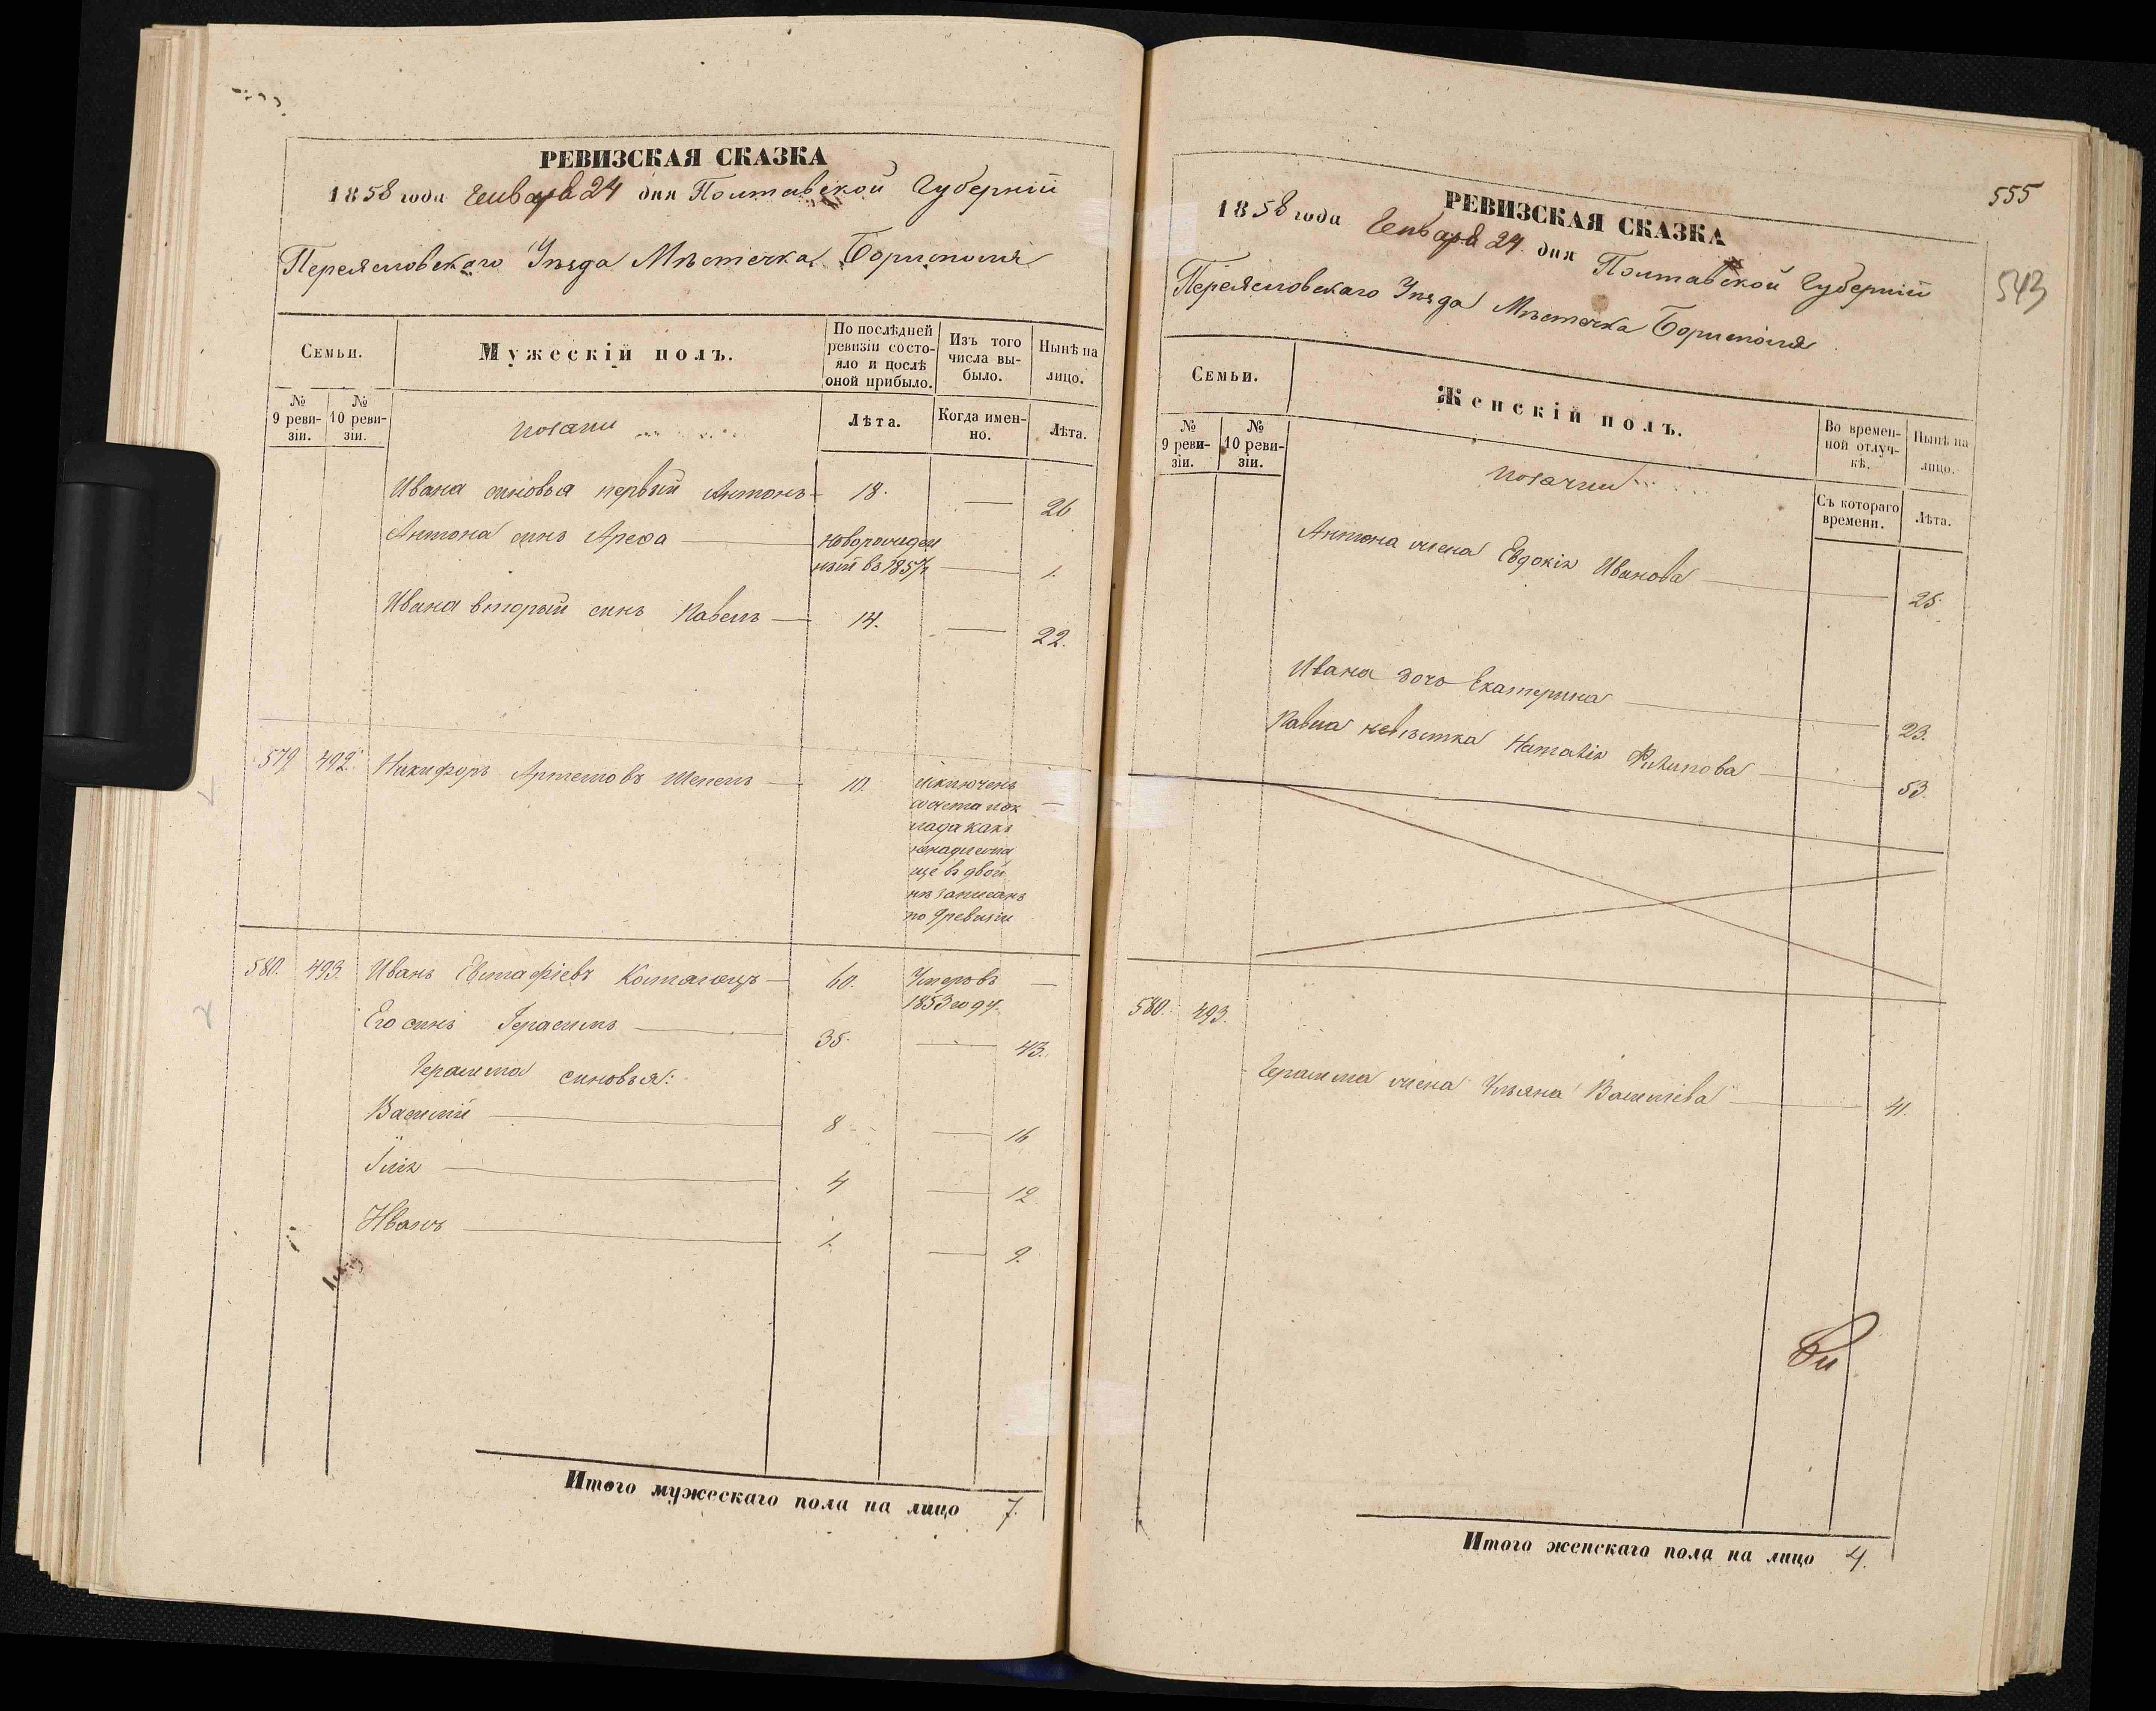 РЕВИЗСКАЯ СКАЗКА
1858 года Генваря 24 дня Полтавской Губерніи
Переясловского Уѣзда Мѣстечка Борисполя
Семьи.
Мужескій полъ.
По послѣдней ревизіи состояло и послѣ оной прибыло.
Изъ того числа выбыло.
Нынѣ на лицо.
№ 9 ревизіи.
№ 10 ревизіи.
Лѣта.
Когда именно.
Лѣта.
Ивана сыновья первый Антонъ 18. 26
Антона сынъ Арефа новорожден
ный въ 1857 1.
Ивана вторый сынъ Павелъ 14. 22.
579 492. Никифоръ Артемовъ Шепель 10. исключенъ
какъ
въ двой
нѣ записанъ
по 9 ревизіи
580. 493. Иванъ Евстафіевъ 60. Умеръ въ
1853 году.
Его сынъ Герасимъ 35. 43.
Герасима сыновья:
Василій 8 16
Илія 4 12
Иванъ 1. 9.
Итого мужескаго пола на лицо 7.
555
543
РЕВИЗСКАЯ СКАЗКА
1858 года Генваря 24. дня Полтавской Губерніи
Переясловскаго Уѣзда Мѣстечка Борисполя
Семьи.
Женскій полъ.
Во временной отлучкѣ.
Нынѣ на лицо.
№ 9 ревизіи.
№ 10 ревизіи.
Съ котораго времени.
Лѣта.
Антона жена Евдокія Иванова 25.
Ивана дочь Екатерина 23.
Павла невѣстка Наталія Филипова 53.
580. 493.
Герасима жена Ульяна Василіева 41.
Итого женскаго пола на лицо 4.